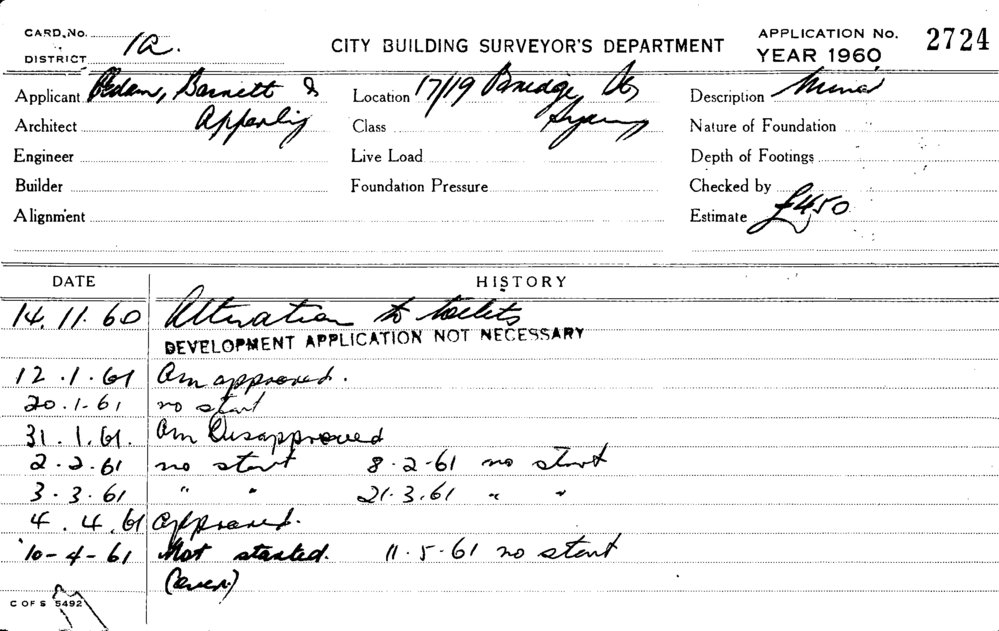 CARD No. 1a. CITY BUILDING SURVEYOR'S DEPARTMENT APPLICATION No. 2724
DISTRICT YEAR 1960
Applicant Barnett & Location 17/19 Bridge St Description
Architect Apperly Class Sydney Nature of Foundation
Engineer Live Load Depth of Footings
Builder Foundation Pressure Checked by
Alignment Estimate £450
DATE HISTORY
14.11.60 Alteration to toilets
DEVELOPMENT APPLICATION NOT NECESSARY
12.1.61 Am approved.
20.1.61 no start
31.1.61. Am Disapproved
2.2.61 no start 8-2-61 no start
3.3.61 " " 21.3.61 " "
4.4.61 approved.
10-4-61 Not started. 11.5.61 no start
(over)
C OF S 5492